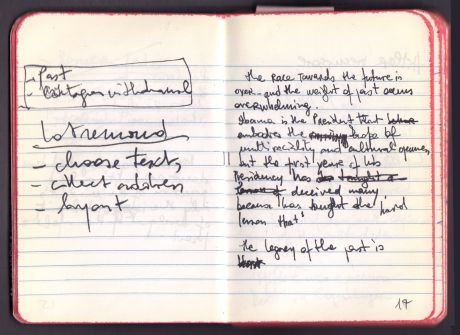 - Past
withdrawal
- choose texts
- collect address
- layout
The Race Towards the future is
over - and the weight of past seems
overwhelming.
Obama is the President that
embodies the hope of
multiraciality and cultural openness
but the first years of his
Presidency has
deceived many
because has taught the hard
lesson that
the legacy of the past is
17